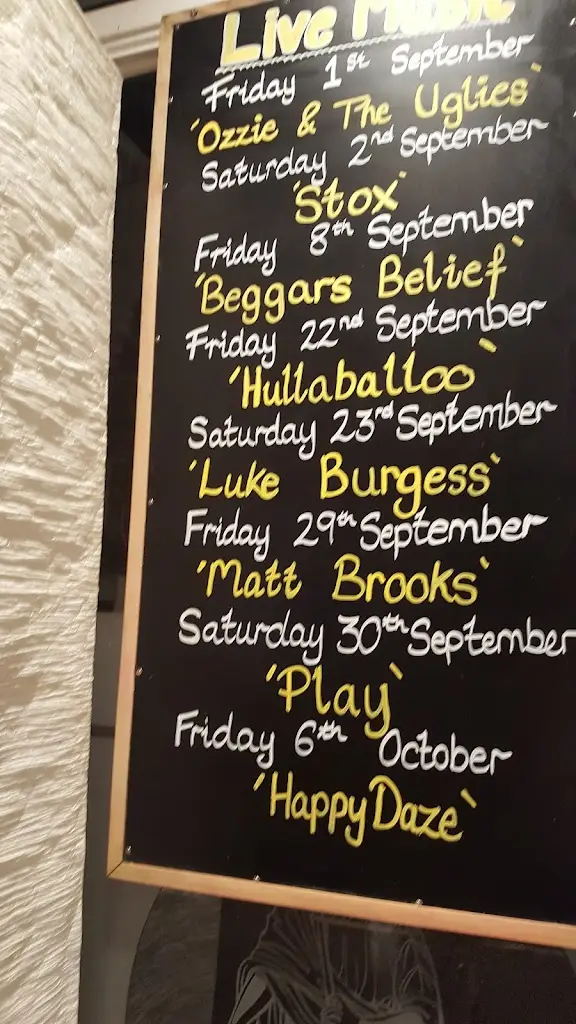 Live Music
Friday 1st September
'Ozzie & The Uglies'
Saturday 2nd September
'Stox'
Friday 8th September
'Beggars Belief'
Friday 22nd September
'Hullaballoo'
Saturday 23rd September
'Luke Burgess'
Friday 29th September
'Matt Brooks'
Saturday 30th September
'Play'
Friday 6th October
'Happy Daze'